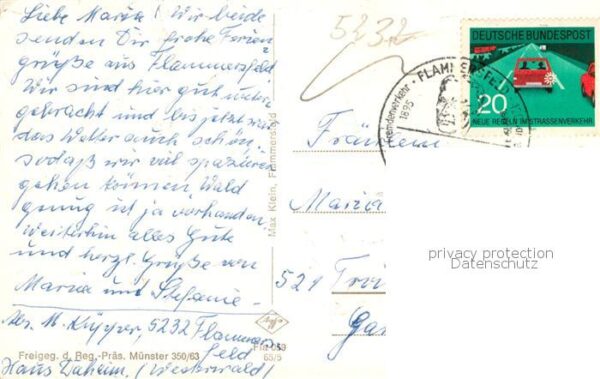 Liebe Maria! Wir beide
senden Dir frohe Ferien
grüße aus Flammersfeld
Wir sind hier gut unter
gebracht und bis jetzt war
das Wetter auch schön.
sodaß wir viel spazieren
gehen können, Wald
genug ist ja vorhanden.
Weiterhin alles Gute
und herzl. Grüße von
Maria und Stefanie
Abs. M. Küpper, 5232 Flammers
feld
Haus Daheim, (Westerwald)
Freigeg. d. Reg.-Präs. Münster 350/63
Max Klein, Flammersfeld
5232
DEUTSCHE BUNDESPOST
20
NEUE REGELN IM STRASSENVERKEHR
FLAMMERSFELD
Fremdenverkehr
1895
Fräulein
Maria
521
Agfa
65/5
privacy protection
Datenschutz